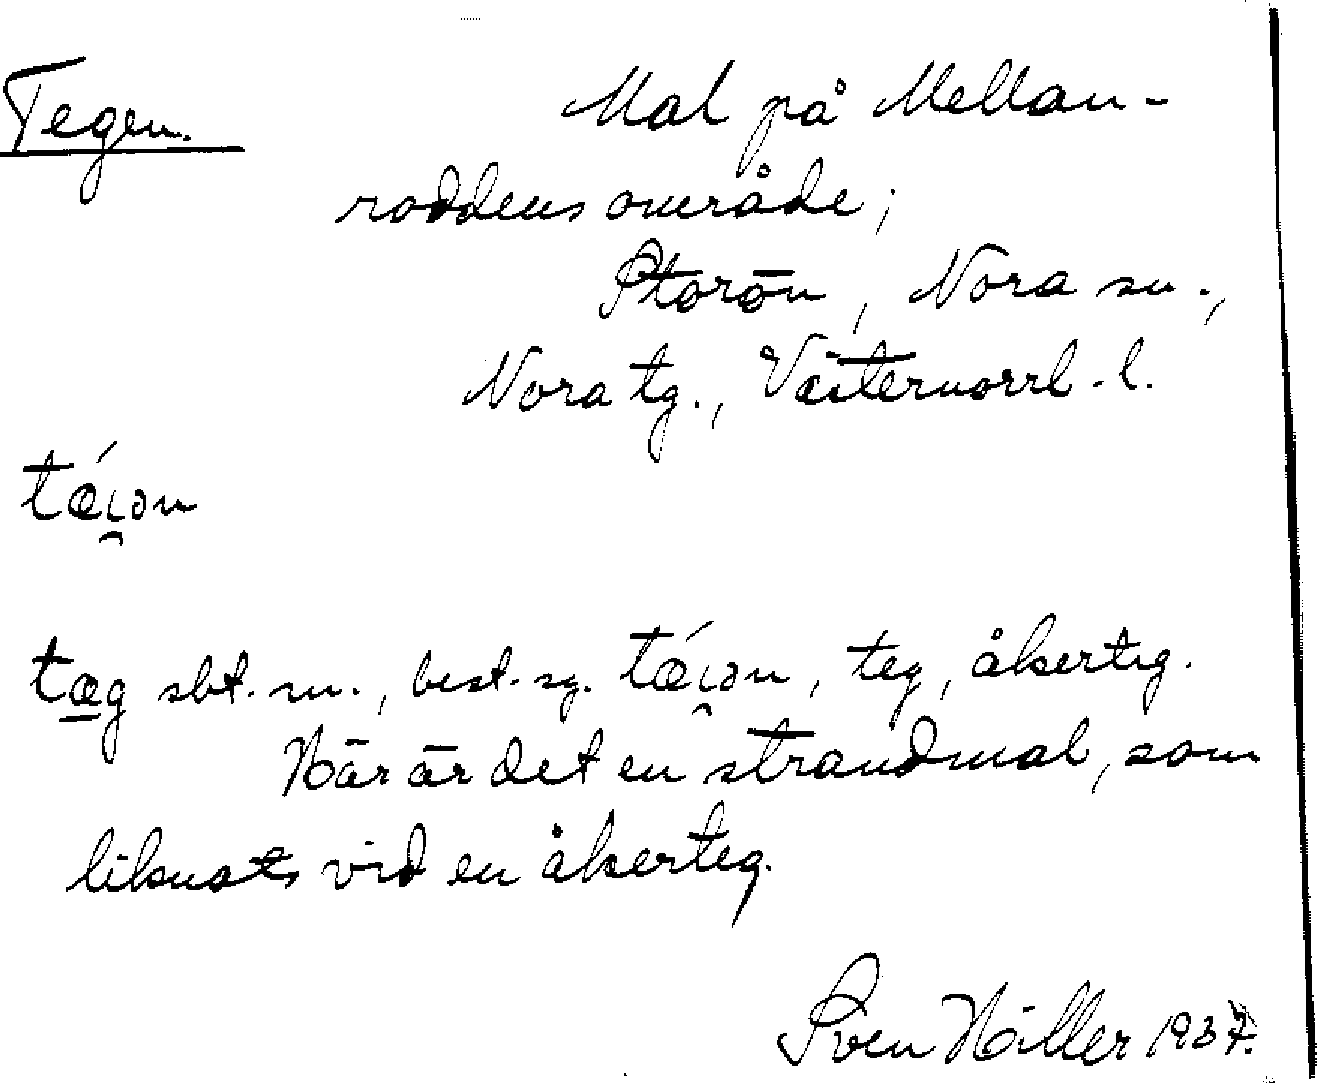 Tegen.
Mal på Mellan-
roddens område;
Storön, Nora sn.,
Nora tg., Västernorrl. l.
tǽi̯ən
tæ̱g sbt. m., best. sg. tǽi̯ən, teg, åkerteg.
Här är det en strandmal, som
liknats vid en åkerteg.
Sven Häller 1937.